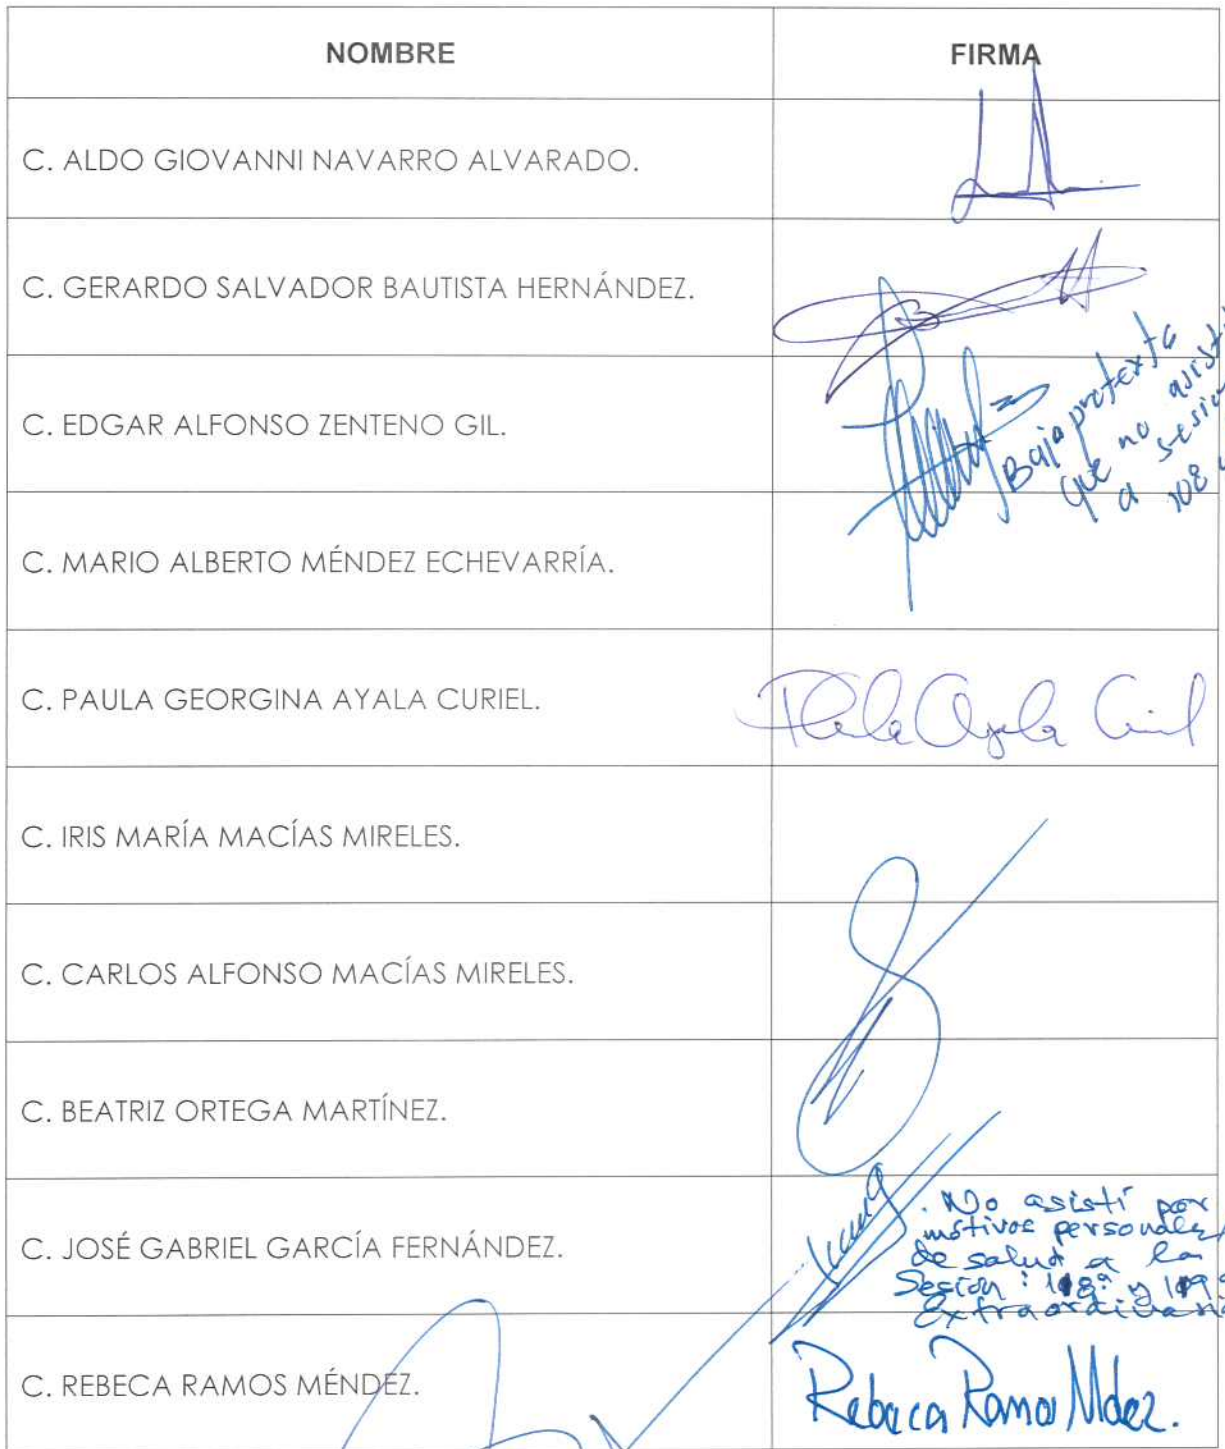 NOMBRE FIRMA
C. ALDO GIOVANNI NAVARRO ALVARADO.
C. GERARDO SALVADOR BAUTISTA HERNÁNDEZ.
C. EDGAR ALFONSO ZENTENO GIL.
Bajo protexta
que no
a
108
C. MARIO ALBERTO MÉNDEZ ECHEVARRÍA.
C. PAULA GEORGINA AYALA CURIEL.
Paula Ayala Curiel
C. IRIS MARÍA MACÍAS MIRELES.
C. CARLOS ALFONSO MACÍAS MIRELES.
C. BEATRIZ ORTEGA MARTÍNEZ.
C. JOSÉ GABRIEL GARCÍA FERNÁNDEZ.
. No asistí por
motivos personales,
de salud a la
Sesión : 108ª y 109ª
C. REBECA RAMOS MÉNDEZ.
Rebeca Ramos Mdez.